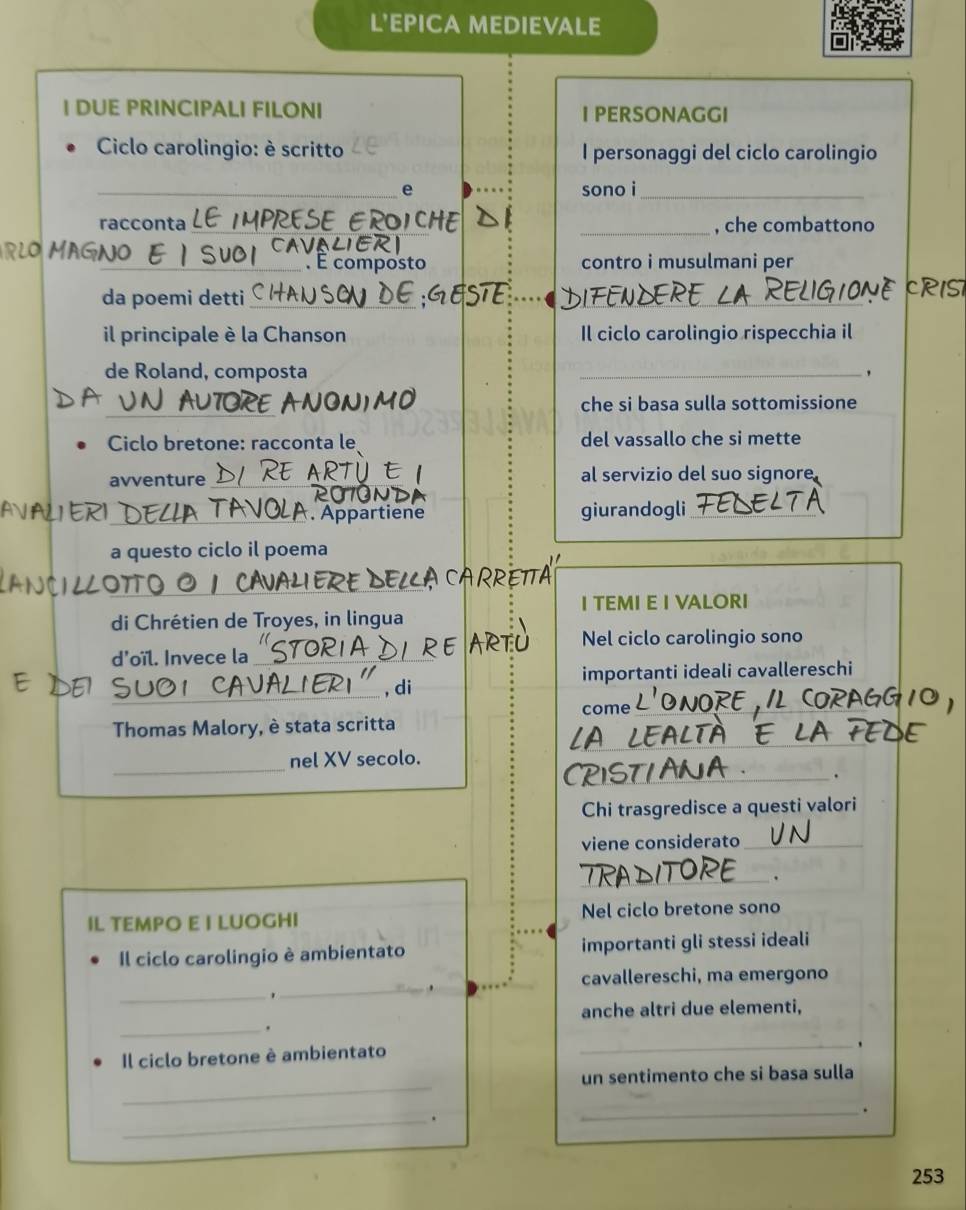 L'EPICA MEDIEVALE
I DUE PRINCIPALI FILONI
• Ciclo carolingio: è scritto LE
e
racconta LE IMPRESE EROICHE DI
RLO MAGNO E I SUOI CAVALIERI. È composto
da poemi detti CHANSON DE ;GESTE
il principale è la Chanson
de Roland, composta
DA UN AUTORE ANONIMO
• Ciclo bretone: racconta le
avventure DI RE ARTÙ E I
AVALIERI DELLA TAVOLA ROTONDA. Appartiene
a questo ciclo il poema
LANCILLOTTO O I CAVALIERE DELLA CARRETTA"
di Chrétien de Troyes, in lingua
d'oïl. Invece la "STORIA DI RE ARTÙ
E DEI SUOI CAVALIERI", di
Thomas Malory, è stata scritta
nel XV secolo.
IL TEMPO E I LUOGHI
• Il ciclo carolingio è ambientato
, ,
.
• Il ciclo bretone è ambientato
.
I PERSONAGGI
I personaggi del ciclo carolingio
sono i
, che combattono
contro i musulmani per
DIFENDERE LA RELIGIONE CRIST
.
Il ciclo carolingio rispecchia il
,
che si basa sulla sottomissione
del vassallo che si mette
al servizio del suo signore,
giurandogli FEDELTÀ.
I TEMI E I VALORI
Nel ciclo carolingio sono
importanti ideali cavallereschi
come L'ONORE, IL CORAGGIO,
LA LEALTÀ E LA FEDE
CRISTIANA. .
Chi trasgredisce a questi valori
viene considerato UN
TRADITORE.
Nel ciclo bretone sono
importanti gli stessi ideali
cavallereschi, ma emergono
anche altri due elementi,
,
un sentimento che si basa sulla
.
253